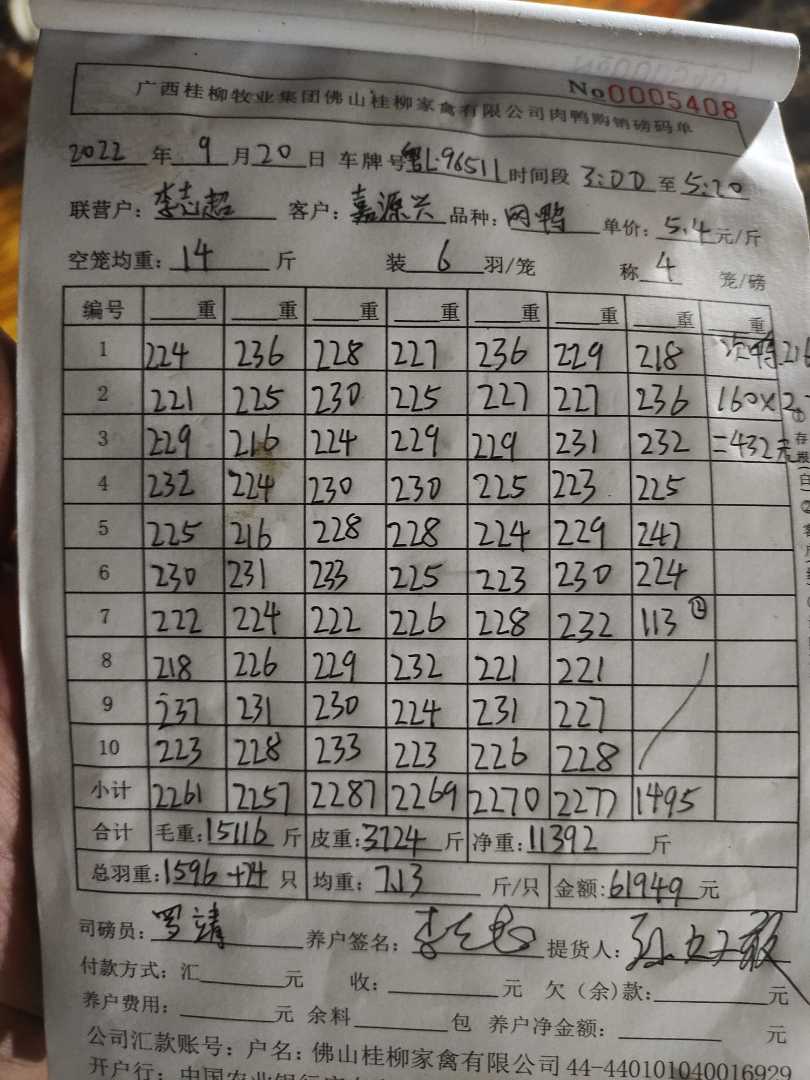 No0005408
广西桂柳牧业集团佛山桂柳家禽有限公司肉鸭购销磅码单
2022 年 9 月 20 日 车牌号 粤L·96511 时间段 3:00 至 5:20
联营户: 李志超 客户: 嘉源兴 品种: 网鸭 单价: 5.4 元/斤
空笼均重: 14 斤 装 6 羽/笼 称 4 笼/磅
编号 重 重 重 重 重 重 重 重
1 224 236 228 227 236 229 218 次鸭 216
2 221 225 230 225 227 227 236 160×2
3 229 216 224 229 229 231 232 =432元
4 232 224 230 230 225 223 225
5 225 216 228 228 224 229 247
6 230 231 233 225 223 230 224
7 222 224 222 226 228 232 113 ⑫
8 218 226 229 232 221 221
9 237 231 230 224 231 227
10 223 228 233 223 226 228
小计 2261 2257 2287 2269 2270 2277 1495
合计 毛重: 15116 斤 皮重: 3724 斤 净重: 11392 斤
总羽重: 1596+24 只 均重: 7.13 斤/只 金额: 61949 元
司磅员: 罗靖 养户签名: 李志超 提货人:
付款方式: 汇 元 收: 元 欠(余)款: 元
养户费用: 元 余料 包 养户净金额: 元
公司汇款账号: 户名: 佛山桂柳家禽有限公司 44-440101040016929
开户行: 中国农业银行